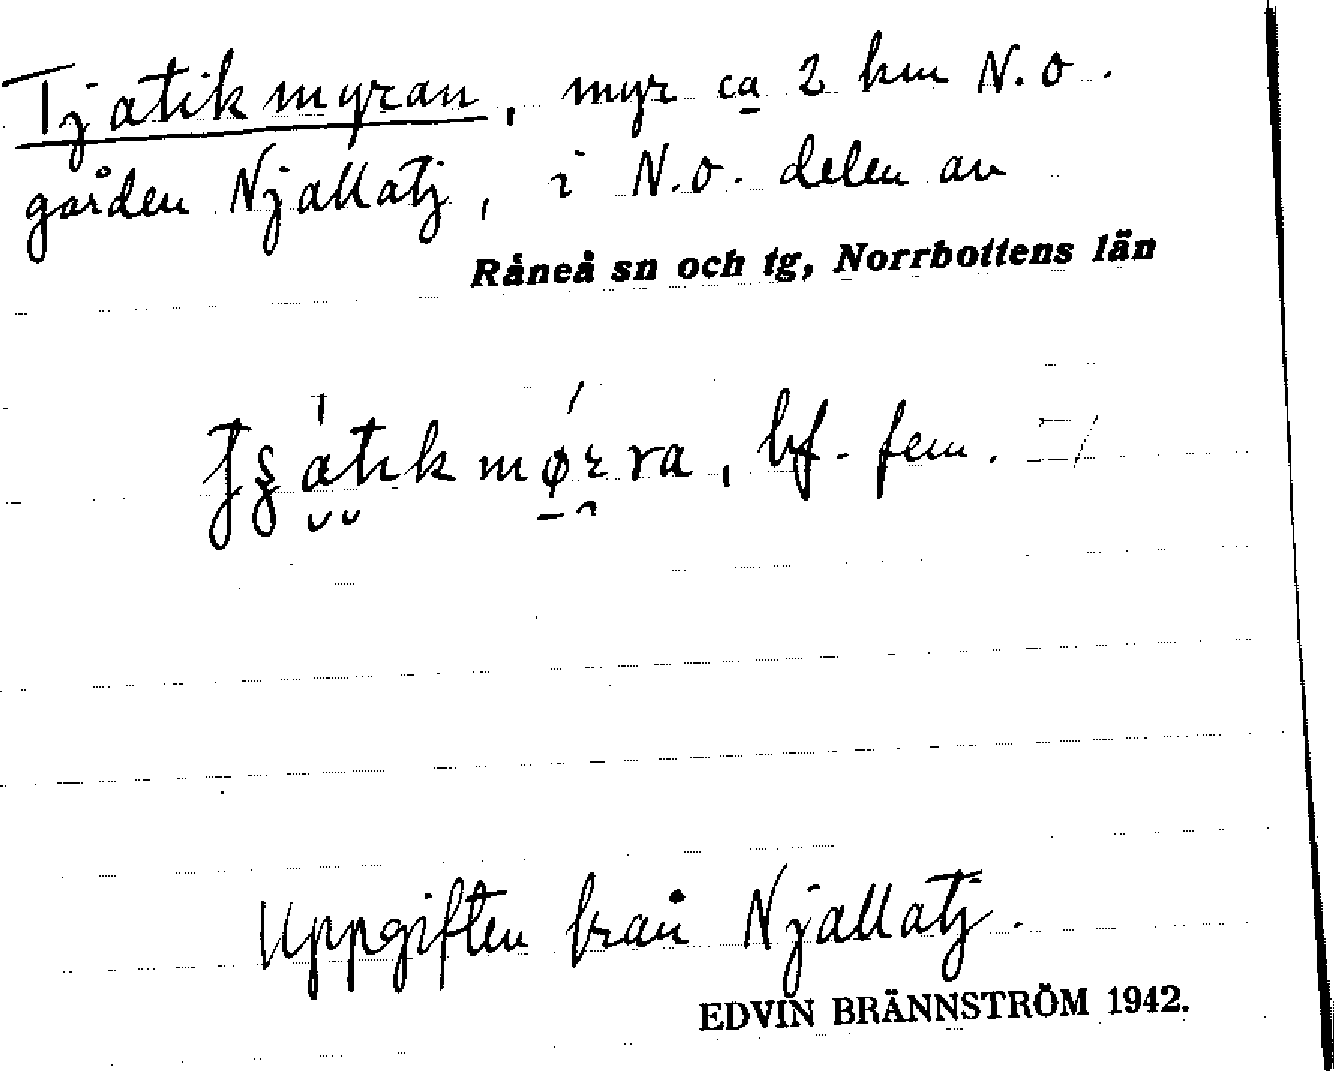 Tjatikmyran, myr ca 2 km N.O.
gården Njallatj, i N.O. delen av
Råneå sn och tg, Norrbottens län
bf. fem.
Uppgiften från Njallatj.
EDVIN BRÄNNSTRÖM 1942.